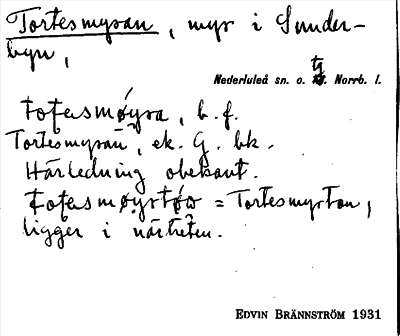 Tortesmyran, myr i Sunder-
byn,
Nederluleå sn. o. tg. Norrb. l.
b. f.
Tortesmyran, ek. G. bk.
Härledning obekant.
= Tortesmyrtan,
ligger i närheten.
EDVIN BRÄNNSTRÖM 1931